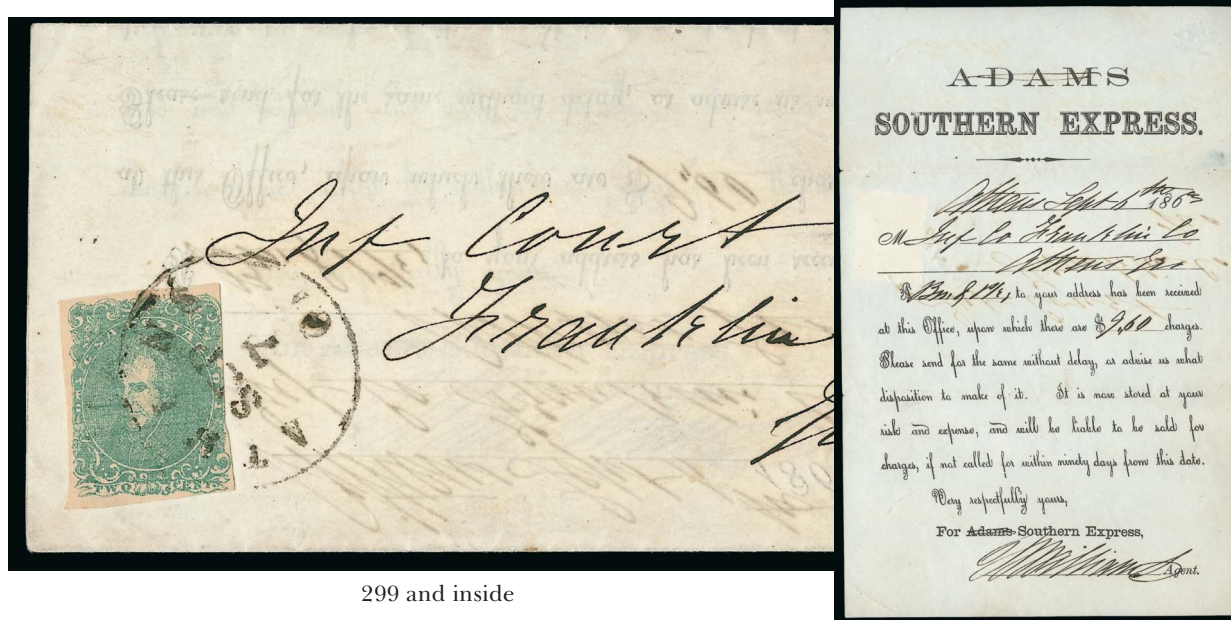 Inf Court
Franklin
TWO CENTS
299 and inside
ADAMS
SOUTHERN EXPRESS.
Athens Sept 1863
M Inf Co Franklin Co
Athens Ga
A to your address has been received
at this Office, upon which there are $9.60 charges.
Please send for the same without delay, or advise us what
disposition to make of it. It is now stored at your
risk and expense, and will be liable to be sold for
charges, if not called for within ninety days from this date.
Very respectfully yours,
For Adams Southern Express,
Agent.